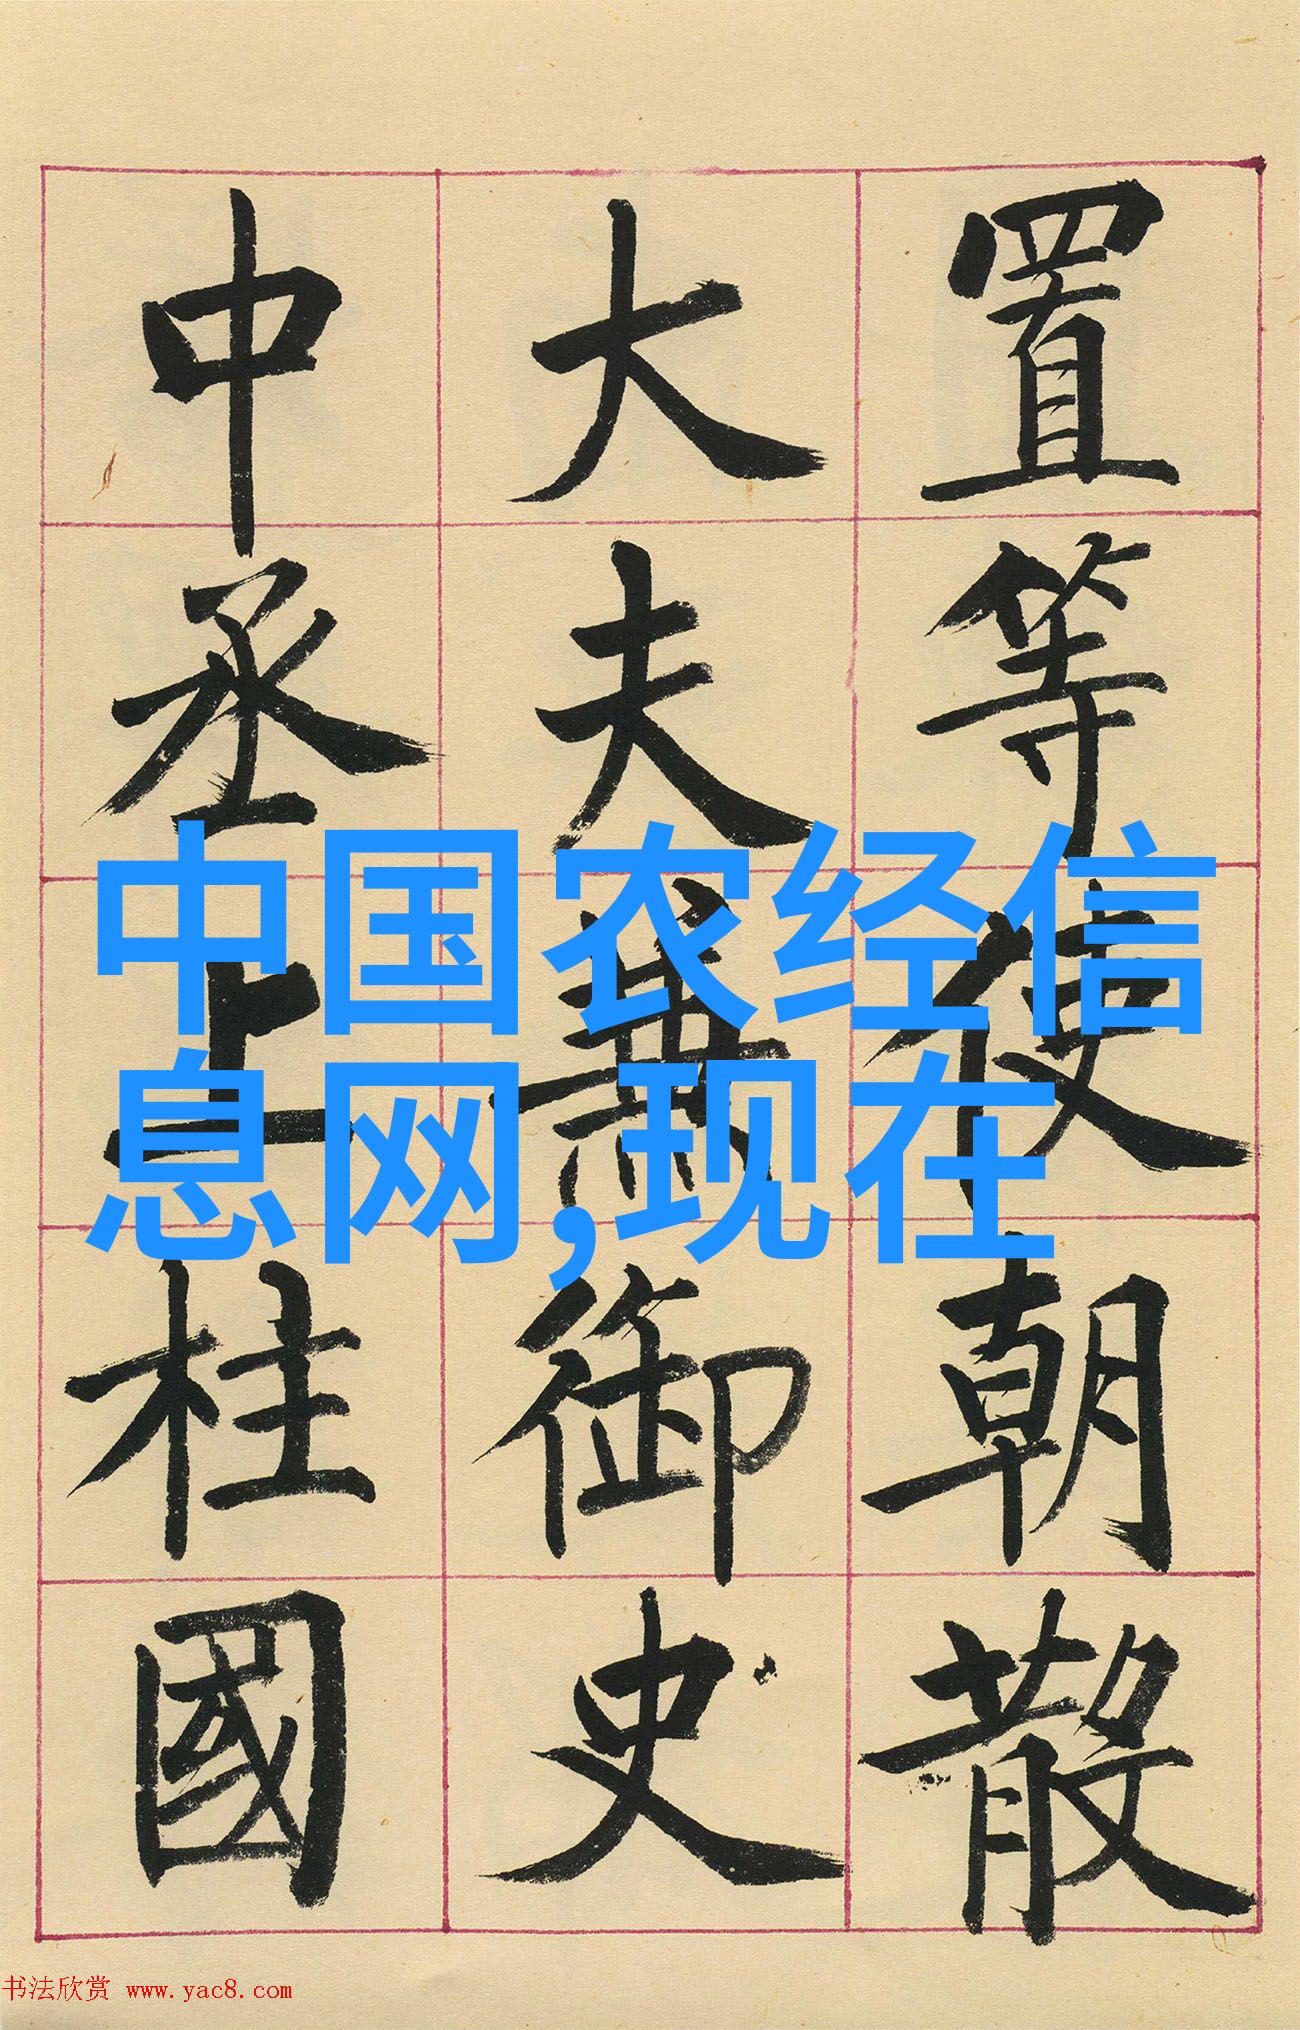 置等使朝散
大夫兼御史
中丞上柱國
中国农经信
息网,现在
书法欣赏 www.yac8.com